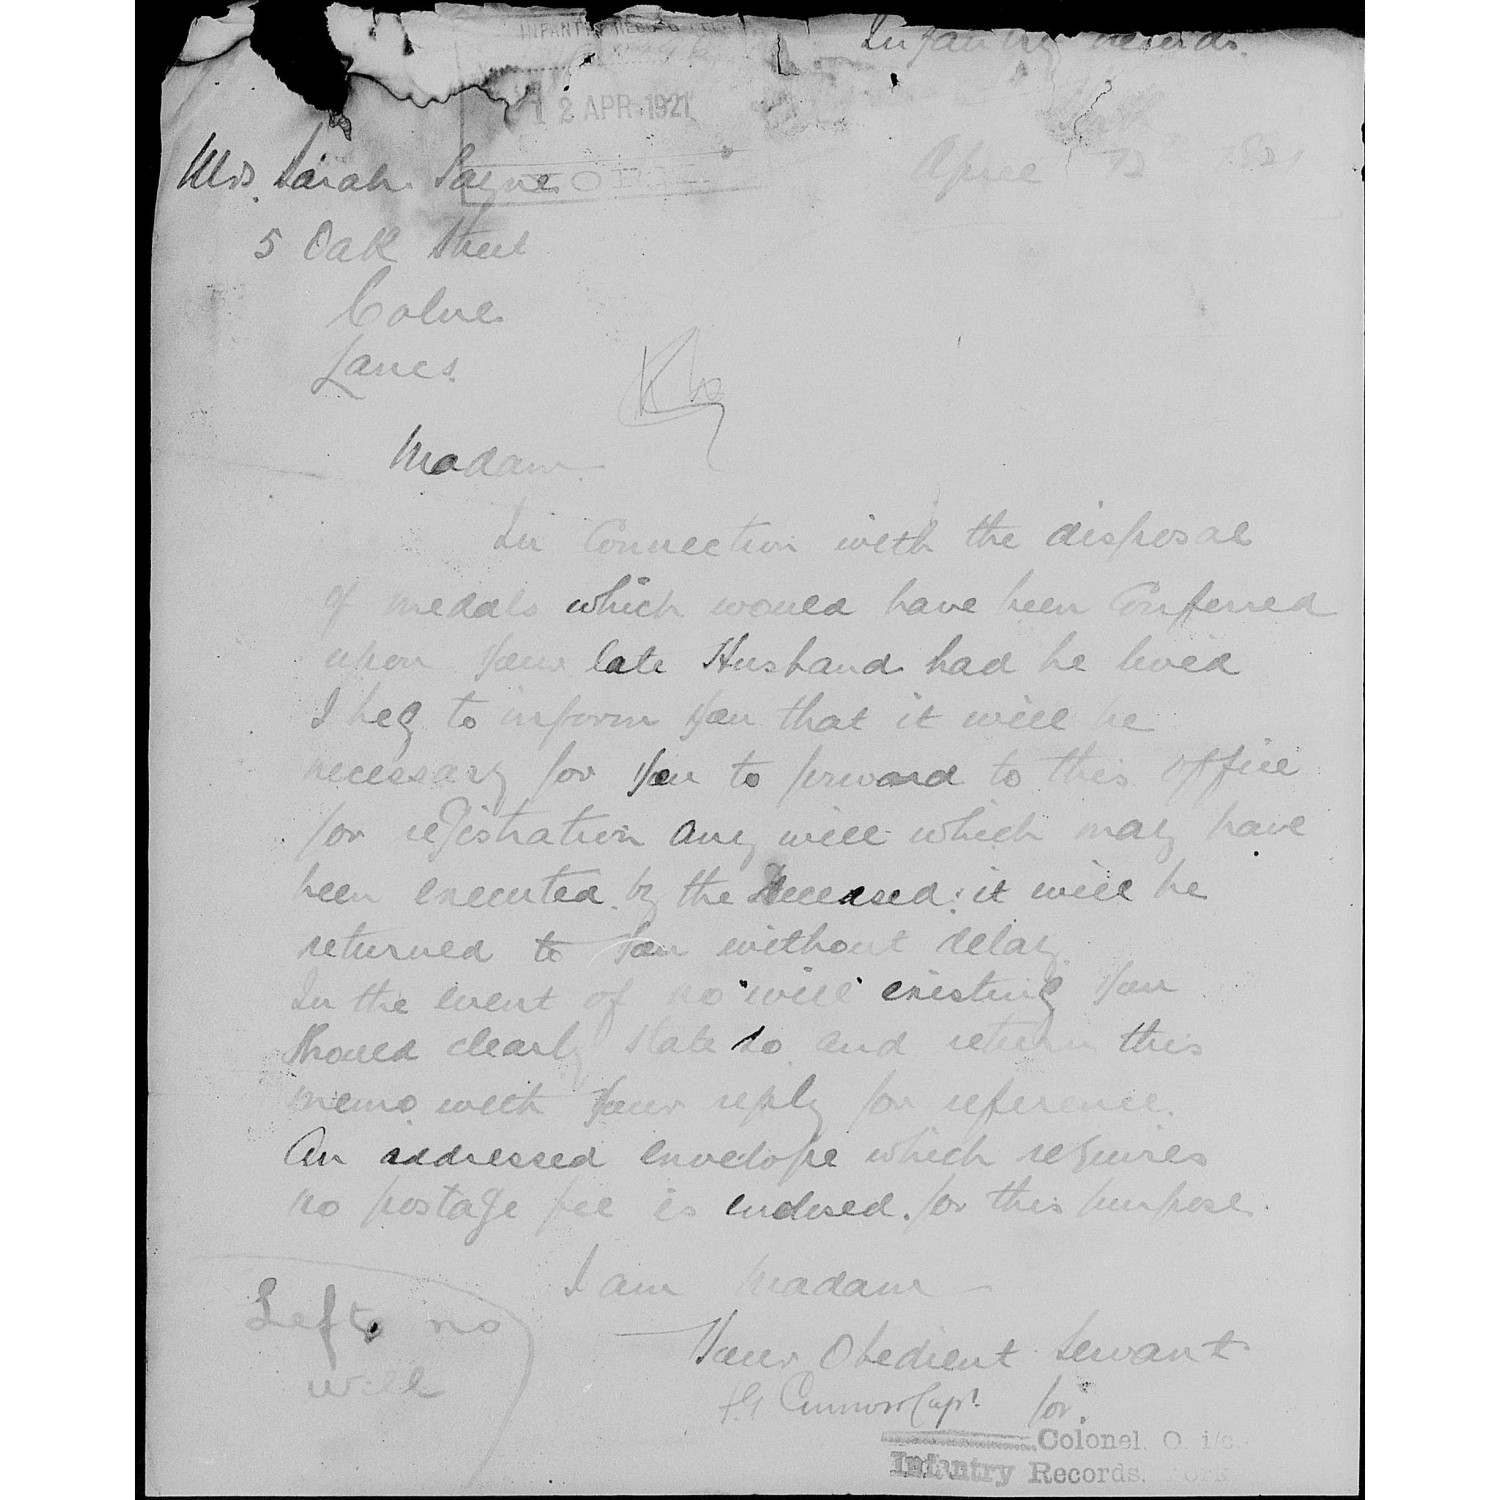 INFANTRY RECO
Infantry Records.
12 APR 1921
York
April 12 1921
Mrs. Sarah Payne
5 Oak Street
Colne
Lancs.
Madam
In Connection with the disposal
of medals which would have been Conferred
upon your late Husband had he lived
I beg to inform you that it will be
necessary for you to forward to this office
for registration any will which may have
been executed by the Deceased: it will be
returned to you without delay.
In the event of no "will" existing you
should clearly state so and return this
memo with your reply for reference.
An addressed envelope which requires
no postage fee is enclosed for this purpose.
I am Madam
Your Obedient Servant
Capt. for
Colonel. O. i/c.
Infantry Records. York
Left no
will